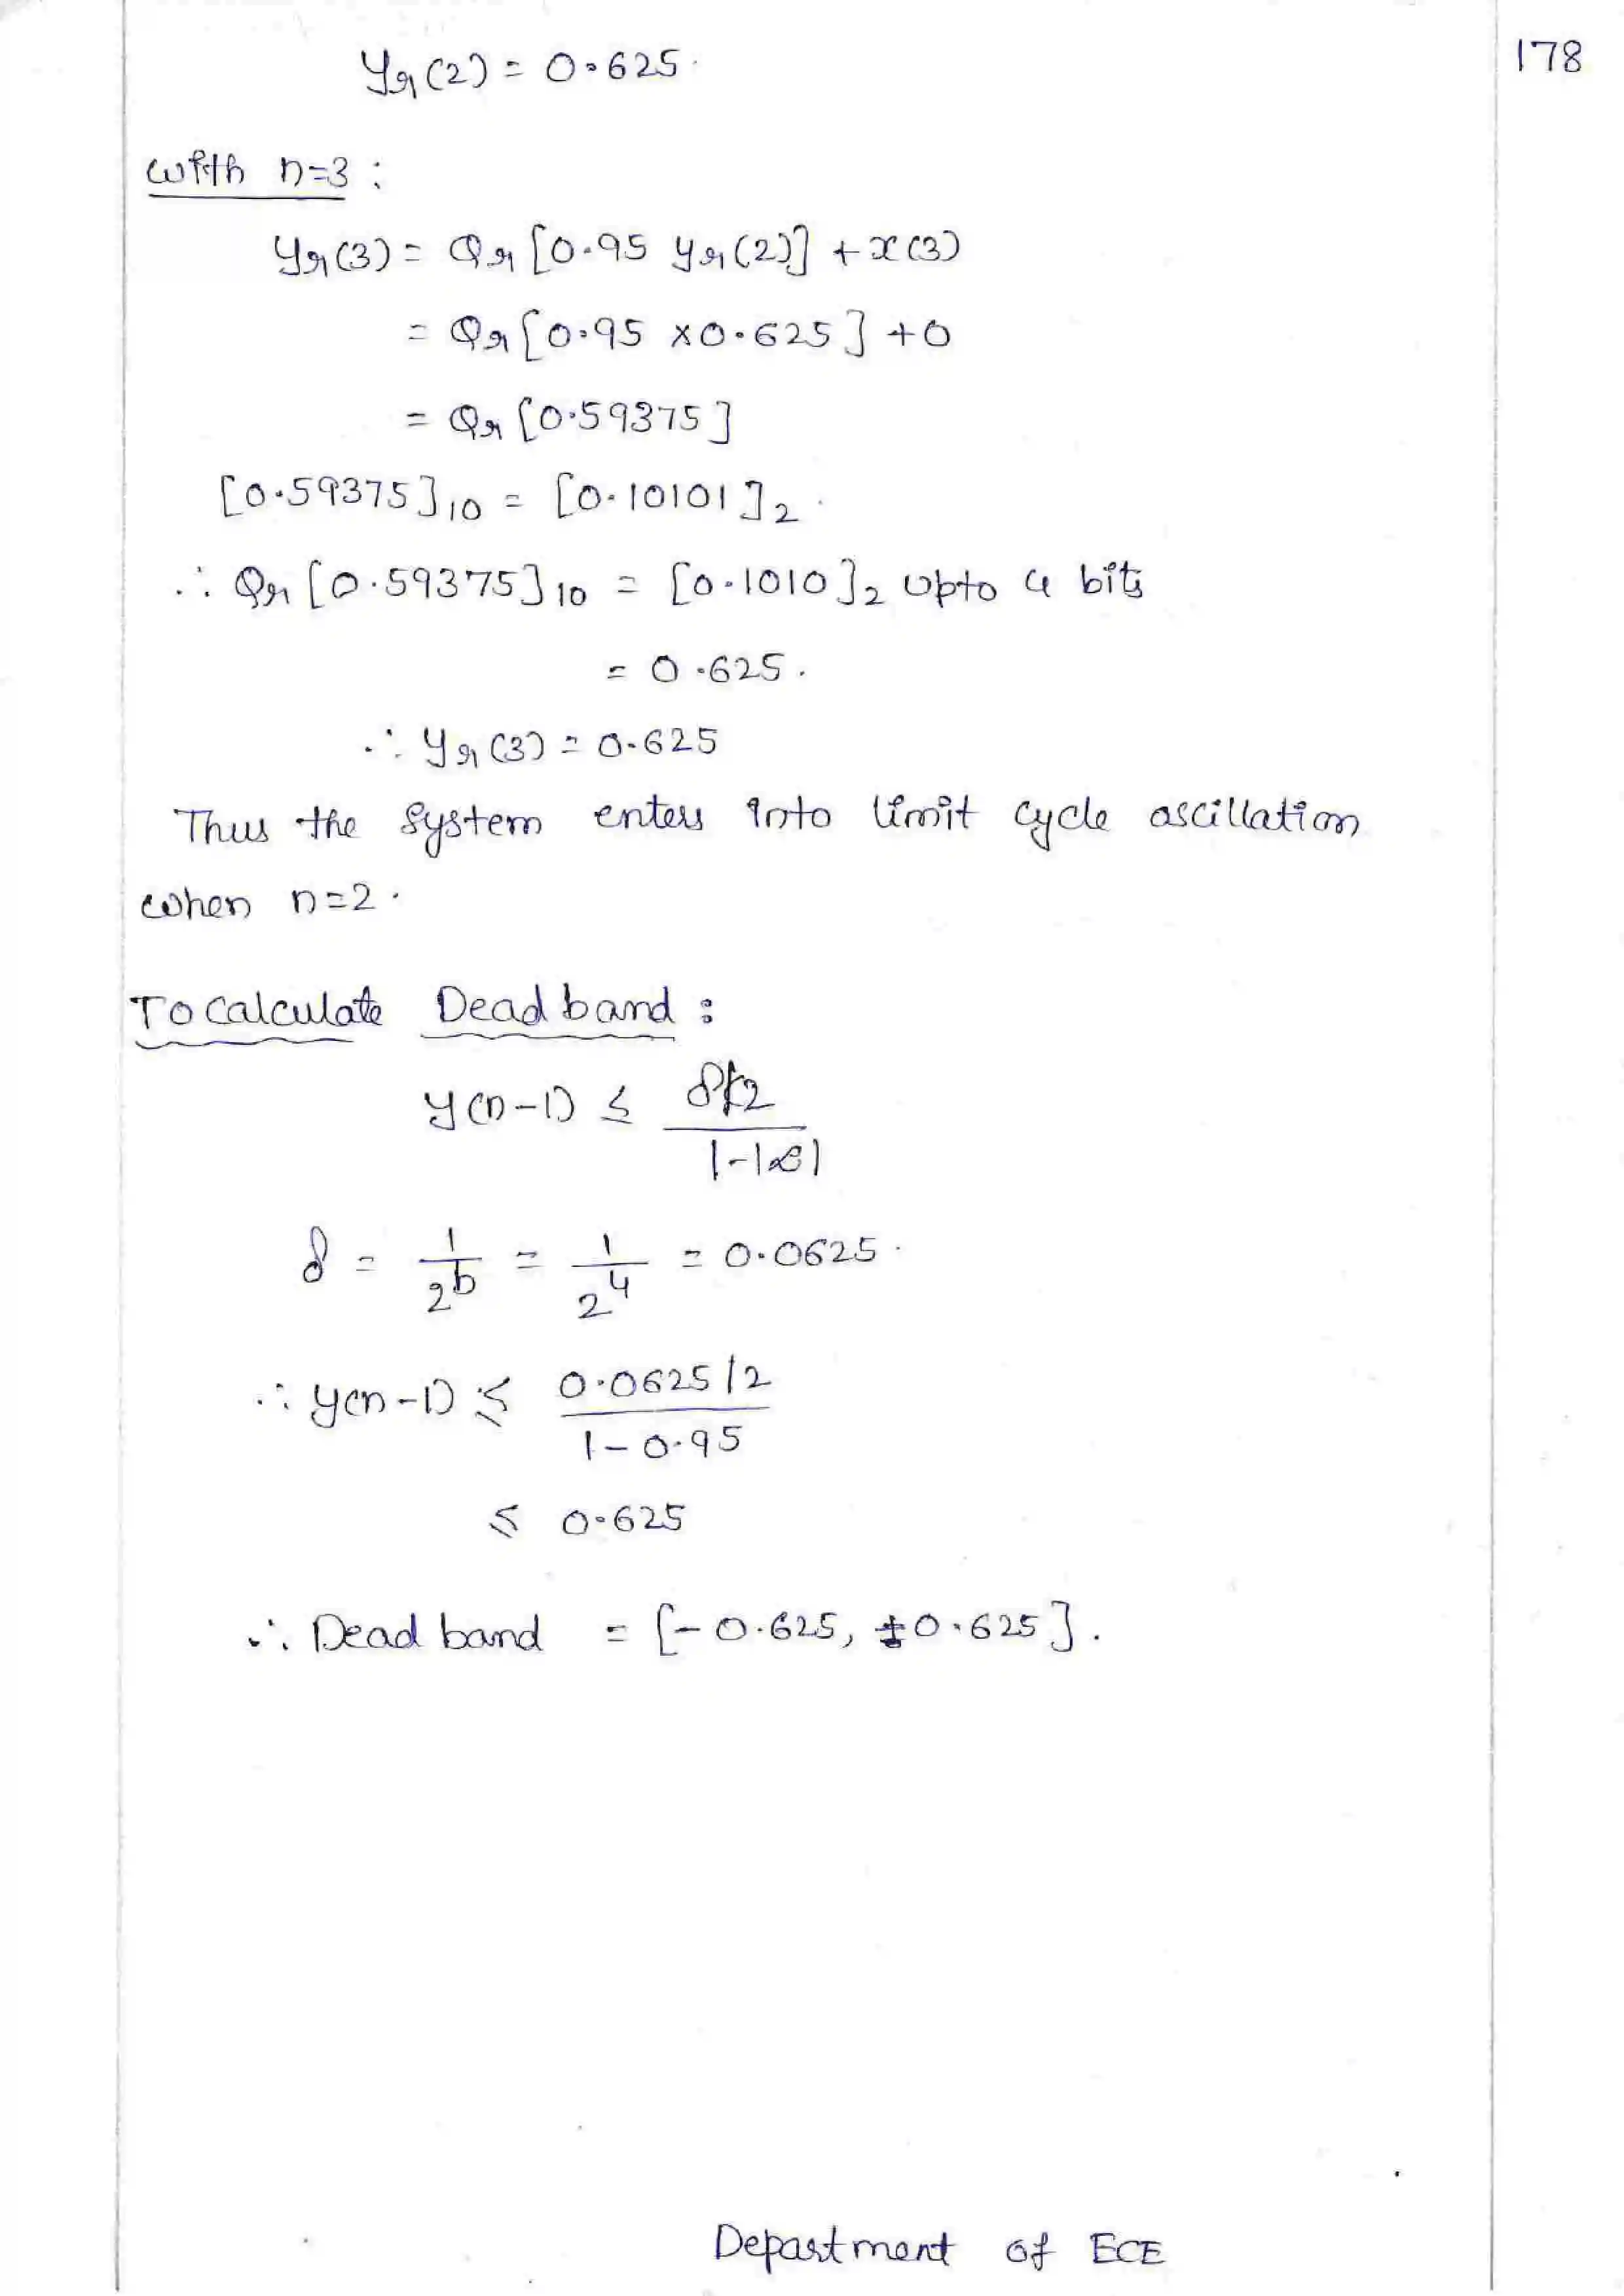 178
yr(2) = 0.625.
with n=3 :
yr(3) = Qr [0.95 yr(2)] + x(3)
= Qr [0.95 x 0.625] + 0
= Qr [0.59375]
[0.59375]10 = [0.10101]2.
∴ Qr [0.59375]10 = [0.1010]2 upto 4 bits
= 0.625.
∴ yr(3) = 0.625
Thus the system enters into limit cycle oscillation
when n=2.
To calculate Dead band :
y(n-1) ≤ δ/2 / 1-|α|
δ = 1/2^b = 1/2^4 = 0.0625.
∴ y(n-1) ≤ 0.0625/2 / 1-0.95
≤ 0.625
∴ Dead band = [-0.625, +0.625].
Department of ECE